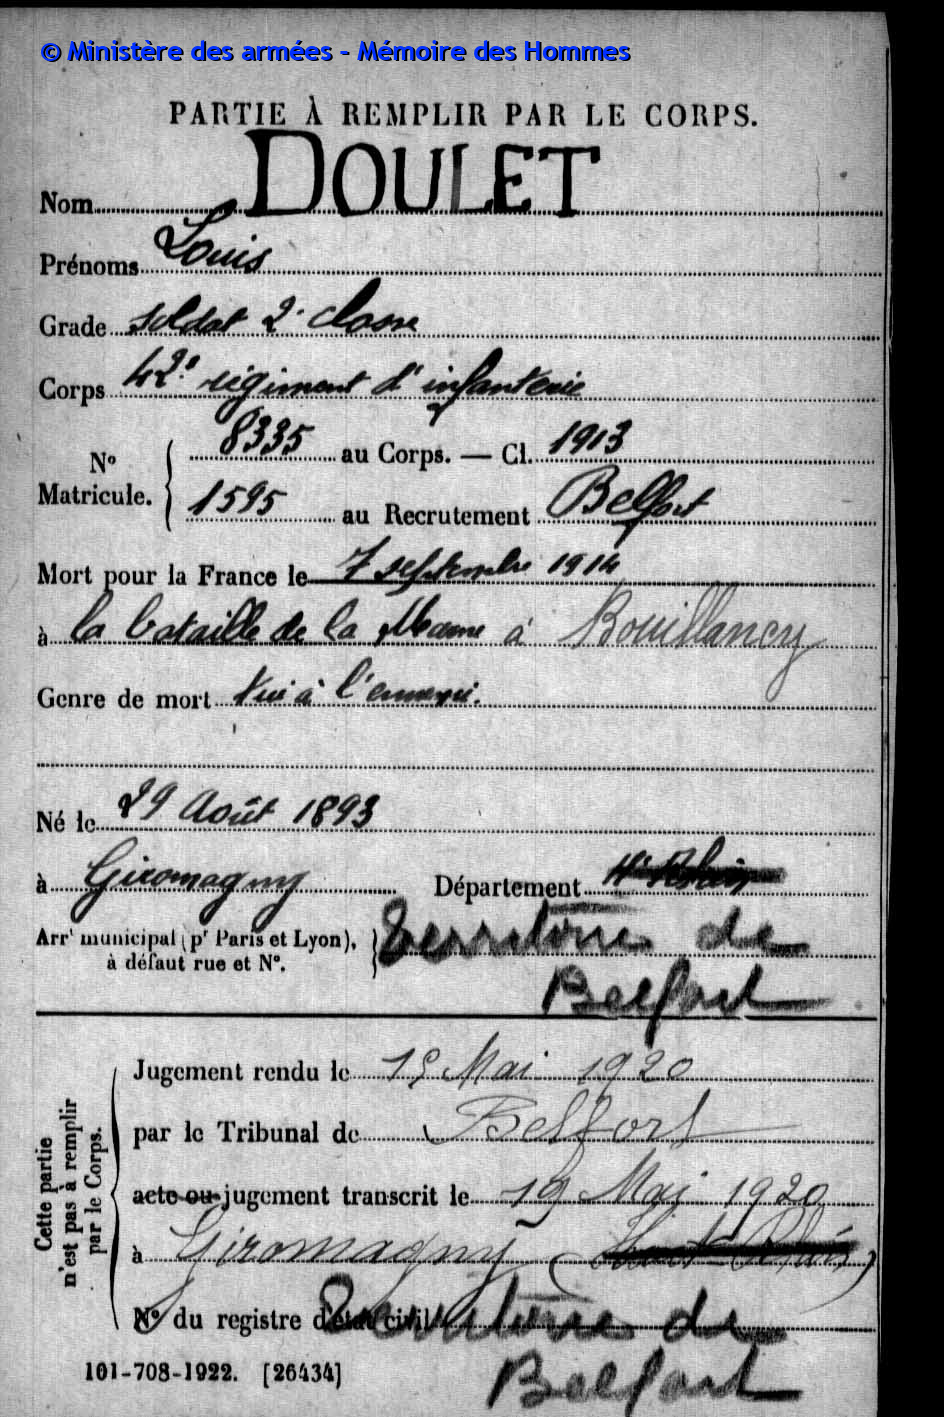 © Ministère des armées - Mémoire des Hommes
PARTIE À REMPLIR PAR LE CORPS.
Nom DOULET
Prénoms Louis
Grade soldat 2e classe
Corps 42e régiment d'infanterie
No Matricule. 8335 au Corps. — Cl. 1913
1595 au Recrutement Belfort
Mort pour la France le 7 septembre 1914
à la bataille de la Marne à Bouillancy
Genre de mort Tué à l'ennemi.
Né le 29 Août 1893
à Giromagny Département Ht Rhin
Arrt municipal (pr Paris et Lyon), à défaut rue et No. Territoire de
Belfort
Cette partie n'est pas à remplir par le Corps.
Jugement rendu le Mai 1920
par le Tribunal de Belfort
acte ou jugement transcrit le 19 Mai 1920
à Giromagny (Haut Rhin)
No du registre d'état civil Territoire de
Belfort
101-708-1922. [26434]